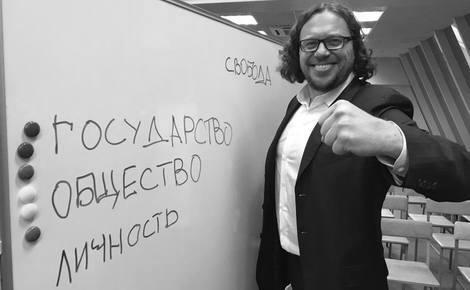 СВОБОДА
ГОСУДАРСТВО
ОБЩЕСТВО
ЛИЧНОСТЬ